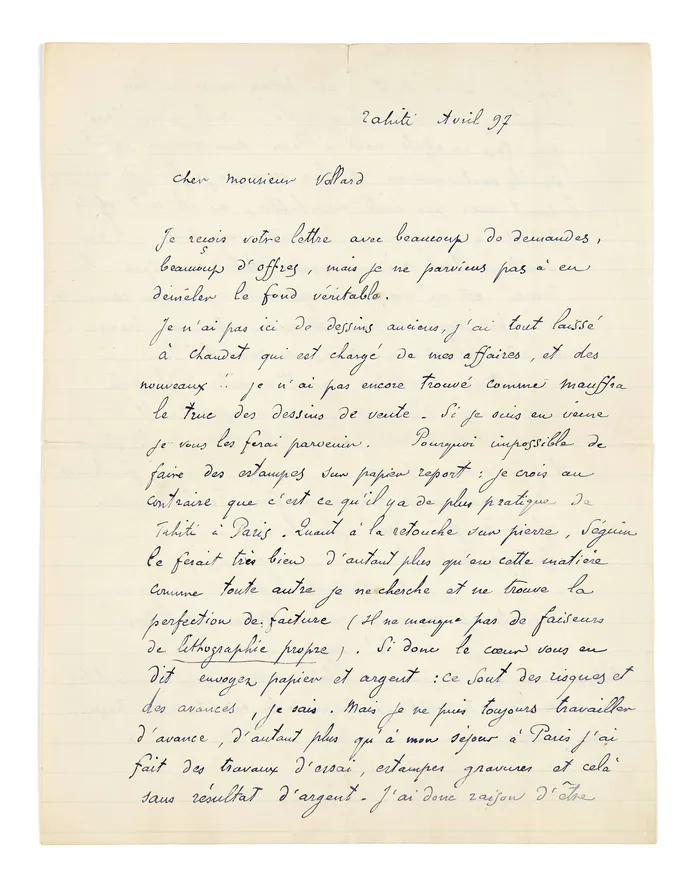 Tahiti Avril 97
Cher Monsieur Vollard
Je reçois votre lettre avec beaucoup de demandes,
beaucoup d'offres, mais je ne parviens pas à en
démêler le fond véritable.
Je n'ai pas ici de dessins anciens, j'ai tout laissé
à Chaudet qui est chargé de mes affaires, et des
nouveaux !! je n'ai pas encore trouvé comme Mauffra
le truc des dessins de vente - Si je suis en veine
je vous les ferai parvenir. Pourquoi impossible de
faire des estampes sur papier report : je crois au
contraire que c'est ce qu'il y a de plus pratique de
Tahiti à Paris. Quant à la retouche sur pierre, Séguin
le ferait très bien d'autant plus qu'en cette matière
comme toute autre je ne cherche et ne trouve la
perfection de facture (Il ne manque pas de faiseurs
de lithographie propre). Si donc le cœur vous en
dit envoyez papier et argent : ce sont des risques et
des avances, je sais. Mais je ne puis toujours travailler
d'avance, d'autant plus qu'à mon séjour à Paris j'ai
fait des travaux d'essai, estampes gravures et celà
sans résultat d'argent - J'ai donc raison d'être